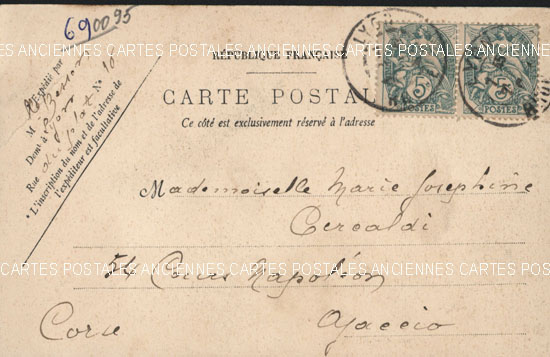 690095
RÉPUBLIQUE FRANÇAISE
CARTE POSTALE
Ce côté est exclusivement réservé à l'adresse
Expédié par
M
Demt à Lyon
Rue du Plat No 10
* L'inscription du nom et de l'adresse de
l'expéditeur est facultative
5c 5c
POSTES POSTES
LYON
CARTES POSTALES ANCIENNES CARTES POSTALES ANCIENNES CARTES POSTALES
Mademoiselle Marie Josephine
Cercaldi
CARTES POSTALES ANCIENNES CARTES POSTALES ANCIENNES CARTES POSTALES
54 Cours Napoléon
Corse Ajaccio